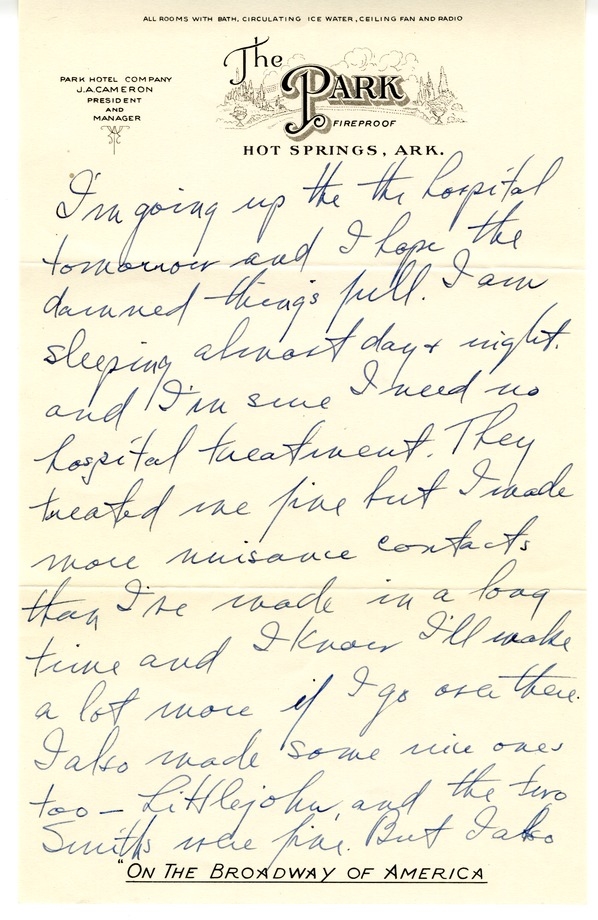 ALL ROOMS WITH BATH, CIRCULATING ICE WATER, CEILING FAN AND RADIO
PARK HOTEL COMPANY
J.A.CAMERON
PRESIDENT
AND
MANAGER
The
PARK
FIREPROOF
HOT SPRINGS, ARK.
I'm going up the the hospital
tomorrow and I hope the
damned things full. I am
sleeping almost day + night.
and I'm sure I need no
hospital treatment. They
treated me fine but I made
more nuisance contacts
than I've made in a long
time and I know I'll make
a lot more if I go over there.
I also made some nice ones
too — Littlejohn, and the two
Smiths were fine. But I also
"ON THE BROADWAY OF AMERICA